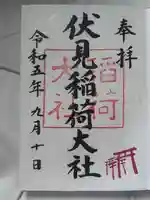 奉拝
伏見稲荷大社
令和五年九月十日